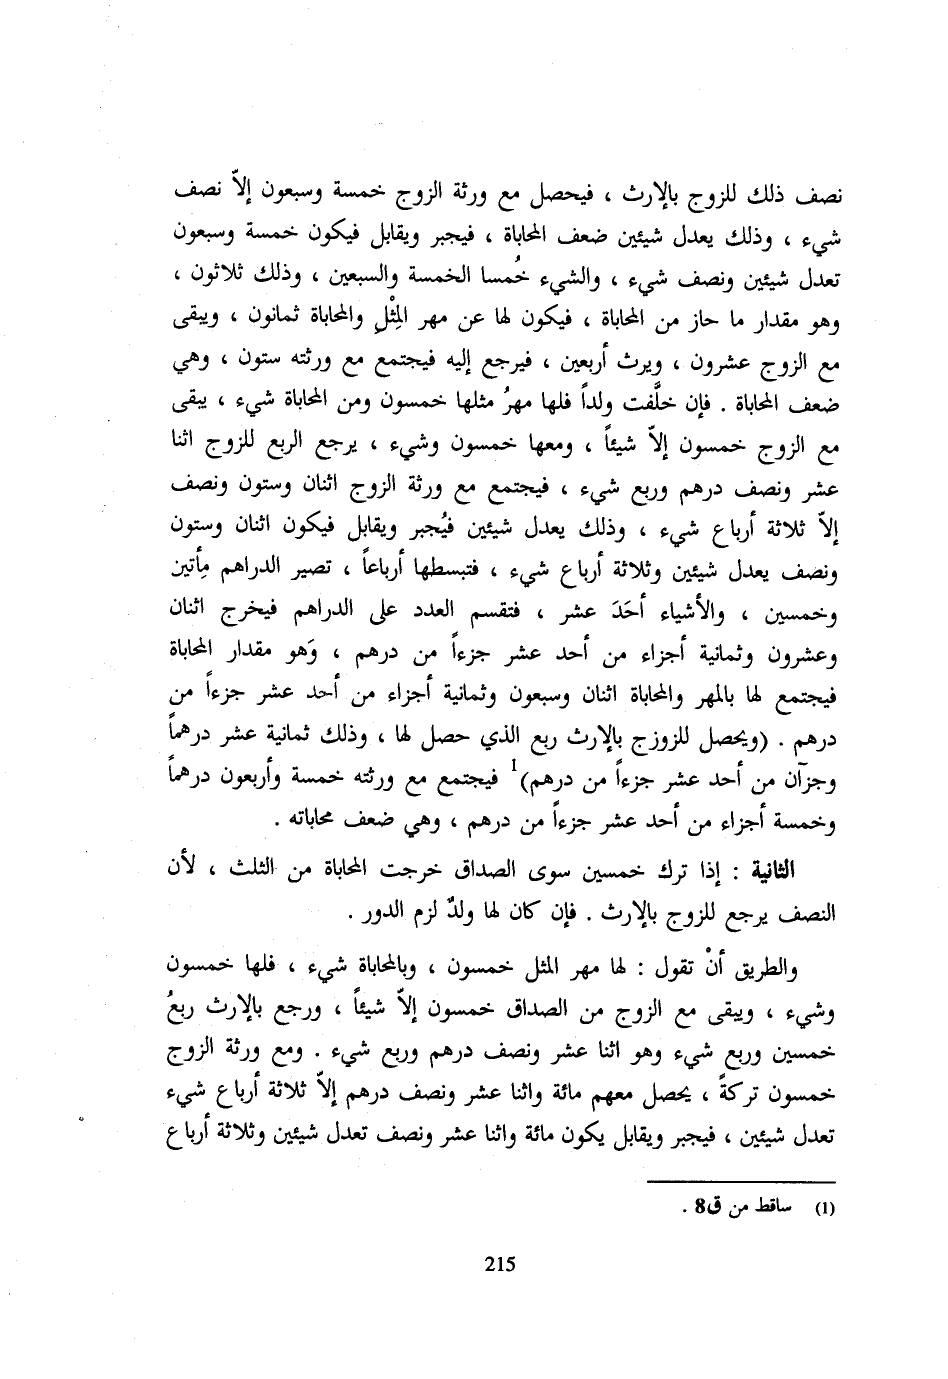 نصف ذلك للزوج بالإرث ، فيحصل مع ورثة الزوج خمسة وسبعون إلاّ نصف
شيء ، وذلك يعدل شيئين ضعف المحاباة ، فيجبر ويقابل فيكون خمسة وسبعون
تعدل شيئين ونصف شيء ، والشيء خُمسا الخمسة والسبعين ، وذلك ثلاثون ،
وهو مقدار ما حاز من المحاباة ، فيكون لها عن مهر المِثْلِ والمحاباة ثمانون ، ويبقى
مع الزوج عشرون ، ويرث أربعين ، فيرجع إليه فيجتمع مع ورثته ستون ، وهي
ضعف المحاباة . فإن خلَّفت ولداً فلها مهرُ مثلها خمسون ومن المحاباة شيء ، يبقى
مع الزوج خمسون إلاّ شيئاً ، ومعها خمسون وشيء ، يرجع الربع للزوج اثنا
عشر ونصف درهم وربع شيء ، فيجتمع مع ورثة الزوج اثنان وستون ونصف
إلاّ ثلاثة أرباع شيء ، وذلك يعدل شيئين فيُجبر ويقابل فيكون اثنان وستون
ونصف يعدل شيئين وثلاثة أرباع شيء ، فتبسطها أرباعاً ، تصير الدراهم مِأتين
وخمسين ، والأشياء أحَدَ عشر ، فتقسم العدد على الدراهم فيخرج اثنان
وعشرون وثمانية أجزاء من أحد عشر جزءاً من درهم ، وَهو مقدار المحاباة
فيجتمع لها بالمهر والمحاباة اثنان وسبعون وثمانية أجزاء من أحد عشر جزءاً من
درهم . (ويحصل للزوزج بالإرث ربع الذي حصل لها ، وذلك ثمانية عشر درهماً
وجزآن من أحد عشر جزءاً من درهم)1 فيجتمع مع ورثته خمسة وأربعون درهماً
وخمسة أجزاء من أحد عشر جزءاً من درهم ، وهي ضعف محاباته .
الثانية : إذا ترك خمسين سوى الصداق خرجت المحاباة من الثلث ، لأن
النصف يرجع للزوج بالإرث . فإن كان لها ولدٌ لزم الدور .
والطريق أنْ تقول : لها مهر المثل خمسون ، وبالمحاباة شيء ، فلها خمسون
وشيء ، ويبقى مع الزوج من الصداق خمسون إلاّ شيئاً ، ورجع بالإرث ربعُ
خمسين وربع شيء وهو اثنا عشر ونصف درهم وربع شيء . ومع ورثة الزوج
خمسون تركةً ، يحصل معهم مائة واثنا عشر ونصف درهم إلاّ ثلاثة أرباع شيء
تعدل شيئين ، فيجبر ويقابل يكون مائة واثنا عشر ونصف تعدل شيئين وثلاثة أرباع
(1) ساقط من ق8 .
215